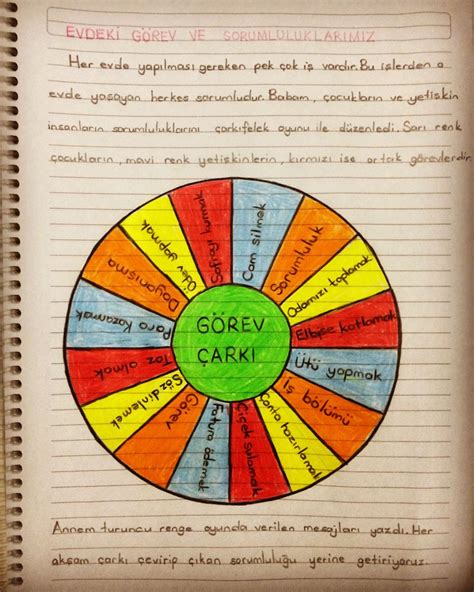 EVDEKİ GÖREV VE SORUMLULUKLARIMIZ
Her evde yapılması gereken pek çok iş vardır. Bu işlerden o
evde yaşayan herkes sorumludur. Babam, çocukların ve yetişkin
insanların sorumluluklarını çarkıfelek oyunu ile düzenledi. Sarı renk
çocukların, mavi renk yetişkinlerin, kırmızı ise ortak görevlerdir.
Cam silmek
Sorumluluk
Odamızı toplamak
Elbise katlamak
Ütü yapmak
İş bölümü
Çanta hazırlamak
Çiçek sulamak
Fatura ödemek
Görev
Söz dinlemek
Toz almak
Para Kazanmak
Dayanışma
Ödev yapmak
Sofrayı kurmak
GÖREV
ÇARKI
Annem turuncu renge oyunda verilen mesajları yazdı. Her
akşam çarkı çevirip çıkan sorumluluğu yerine getiriyoruz.